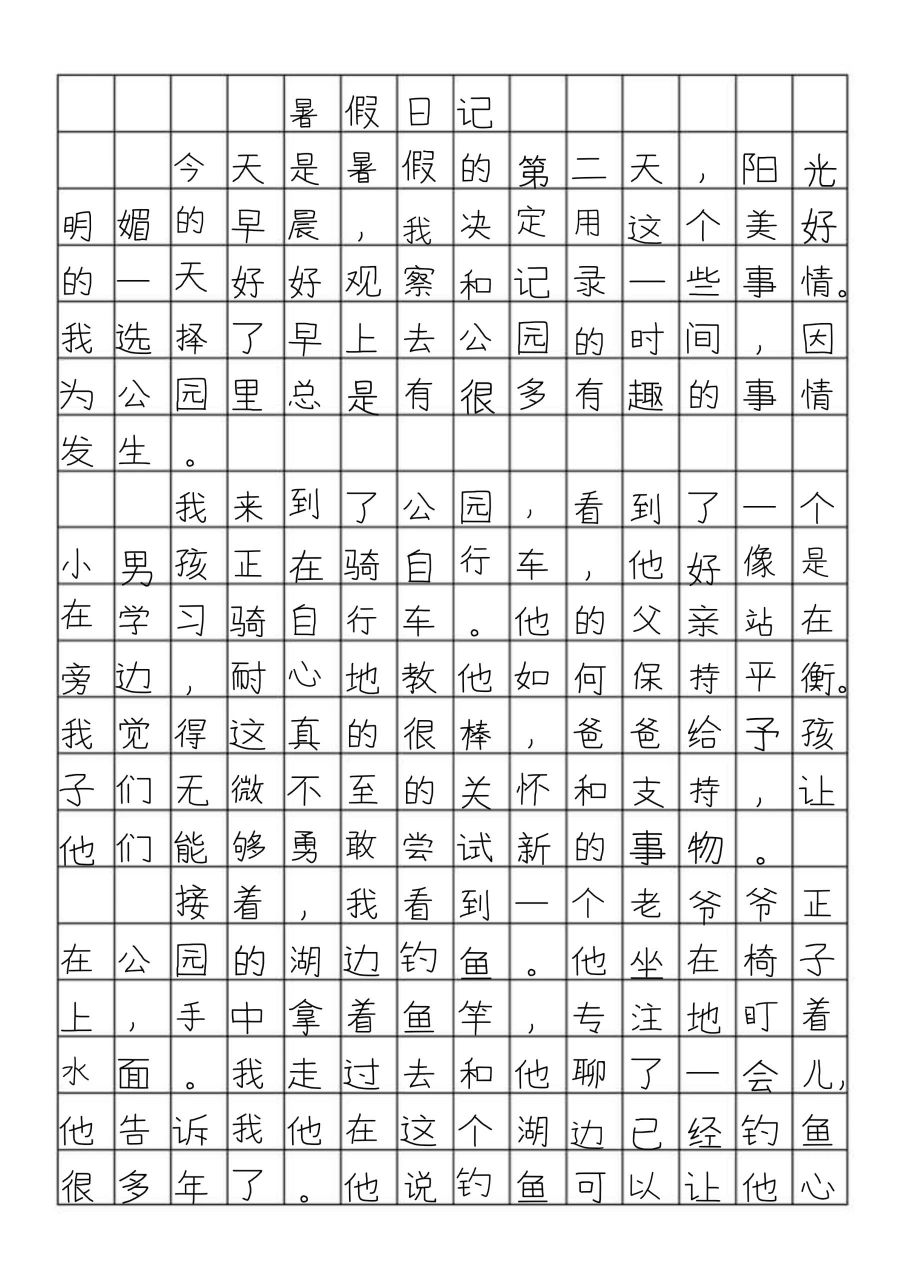 暑假日记
今天是暑假的第二天，阳光
明媚的早晨，我决定用这个美好
的一天好好观察和记录一些事情。
我选择了早上去公园的时间，因
为公园里总是有很多有趣的事情
发生。
我来到了公园，看到了一个
小男孩正在骑自行车，他好像是
在学习骑自行车。他的父亲站在
旁边，耐心地教他如何保持平衡。
我觉得这真的很棒，爸爸给予孩
子们无微不至的关怀和支持，让
他们能够勇敢尝试新的事物。
接着，我看到一个老爷爷正
在公园的湖边钓鱼。他坐在椅子
上，手中拿着鱼竿，专注地盯着
水面。我走过去和他聊了一会儿，
他告诉我他在这个湖边已经钓鱼
很多年了。他说钓鱼可以让他心